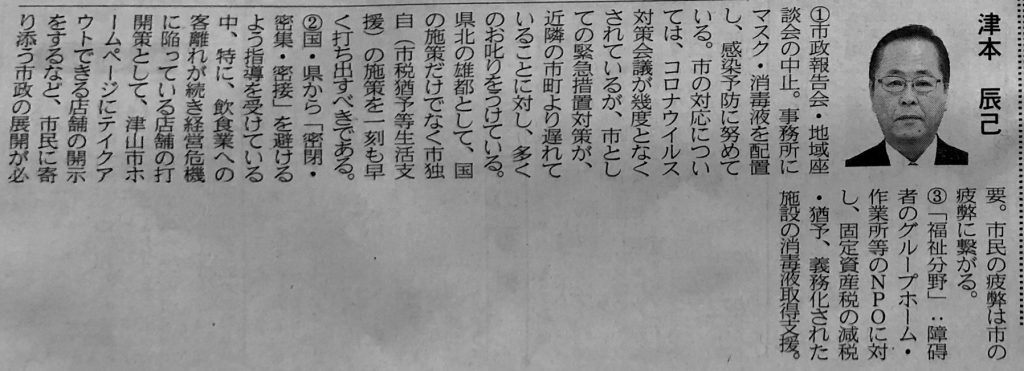 津本 辰己
①市政報告会・地域座
談会の中止。事務所に
マスク・消毒液を配置
し、感染予防に努めて
いる。市の対応につい
ては、コロナウイルス
対策会議が幾度となく
されているが、市とし
ての緊急措置対策が、
近隣の市町より遅れて
いることに対し、多く
のお叱りをつけている。
県北の雄都として、国
の施策だけでなく市独
自（市税猶予等生活支
援）の施策を一刻も早
く打ち出すべきである。
②国・県から「密閉・
密集・密接」を避ける
よう指導を受けている
中、特に、飲食業への
客離れが続き経営危機
に陥っている店舗の打
開策として、津山市ホ
ームページにテイクア
ウトできる店舗の開示
をするなど、市民に寄
り添う市政の展開が必
要。市民の疲弊は市の
疲弊に繋がる。
③「福祉分野」：障碍
者のグループホーム・
作業所等のNPOに対
し、固定資産税の減税
・猶予、義務化された
施設の消毒液取得支援。